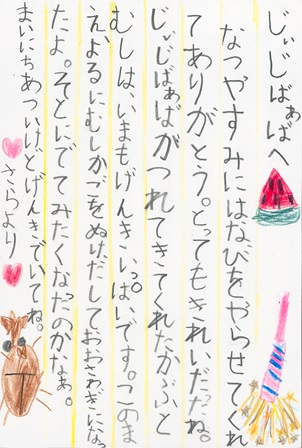 じぃじばぁばへ
なつやすみにはなびをやらせてくれ
てありがとう。とってもきれいだったね。
じぃじばぁばがつれてきてくれたかぶと
むしは、いまもげんきいっぱいです。このま
えよるにむしかごをぬけだしておおさわぎになっ
たよ。そとにでてみたくなったのかなぁ。
まいにちあついけどげんきでいてね。
さらより